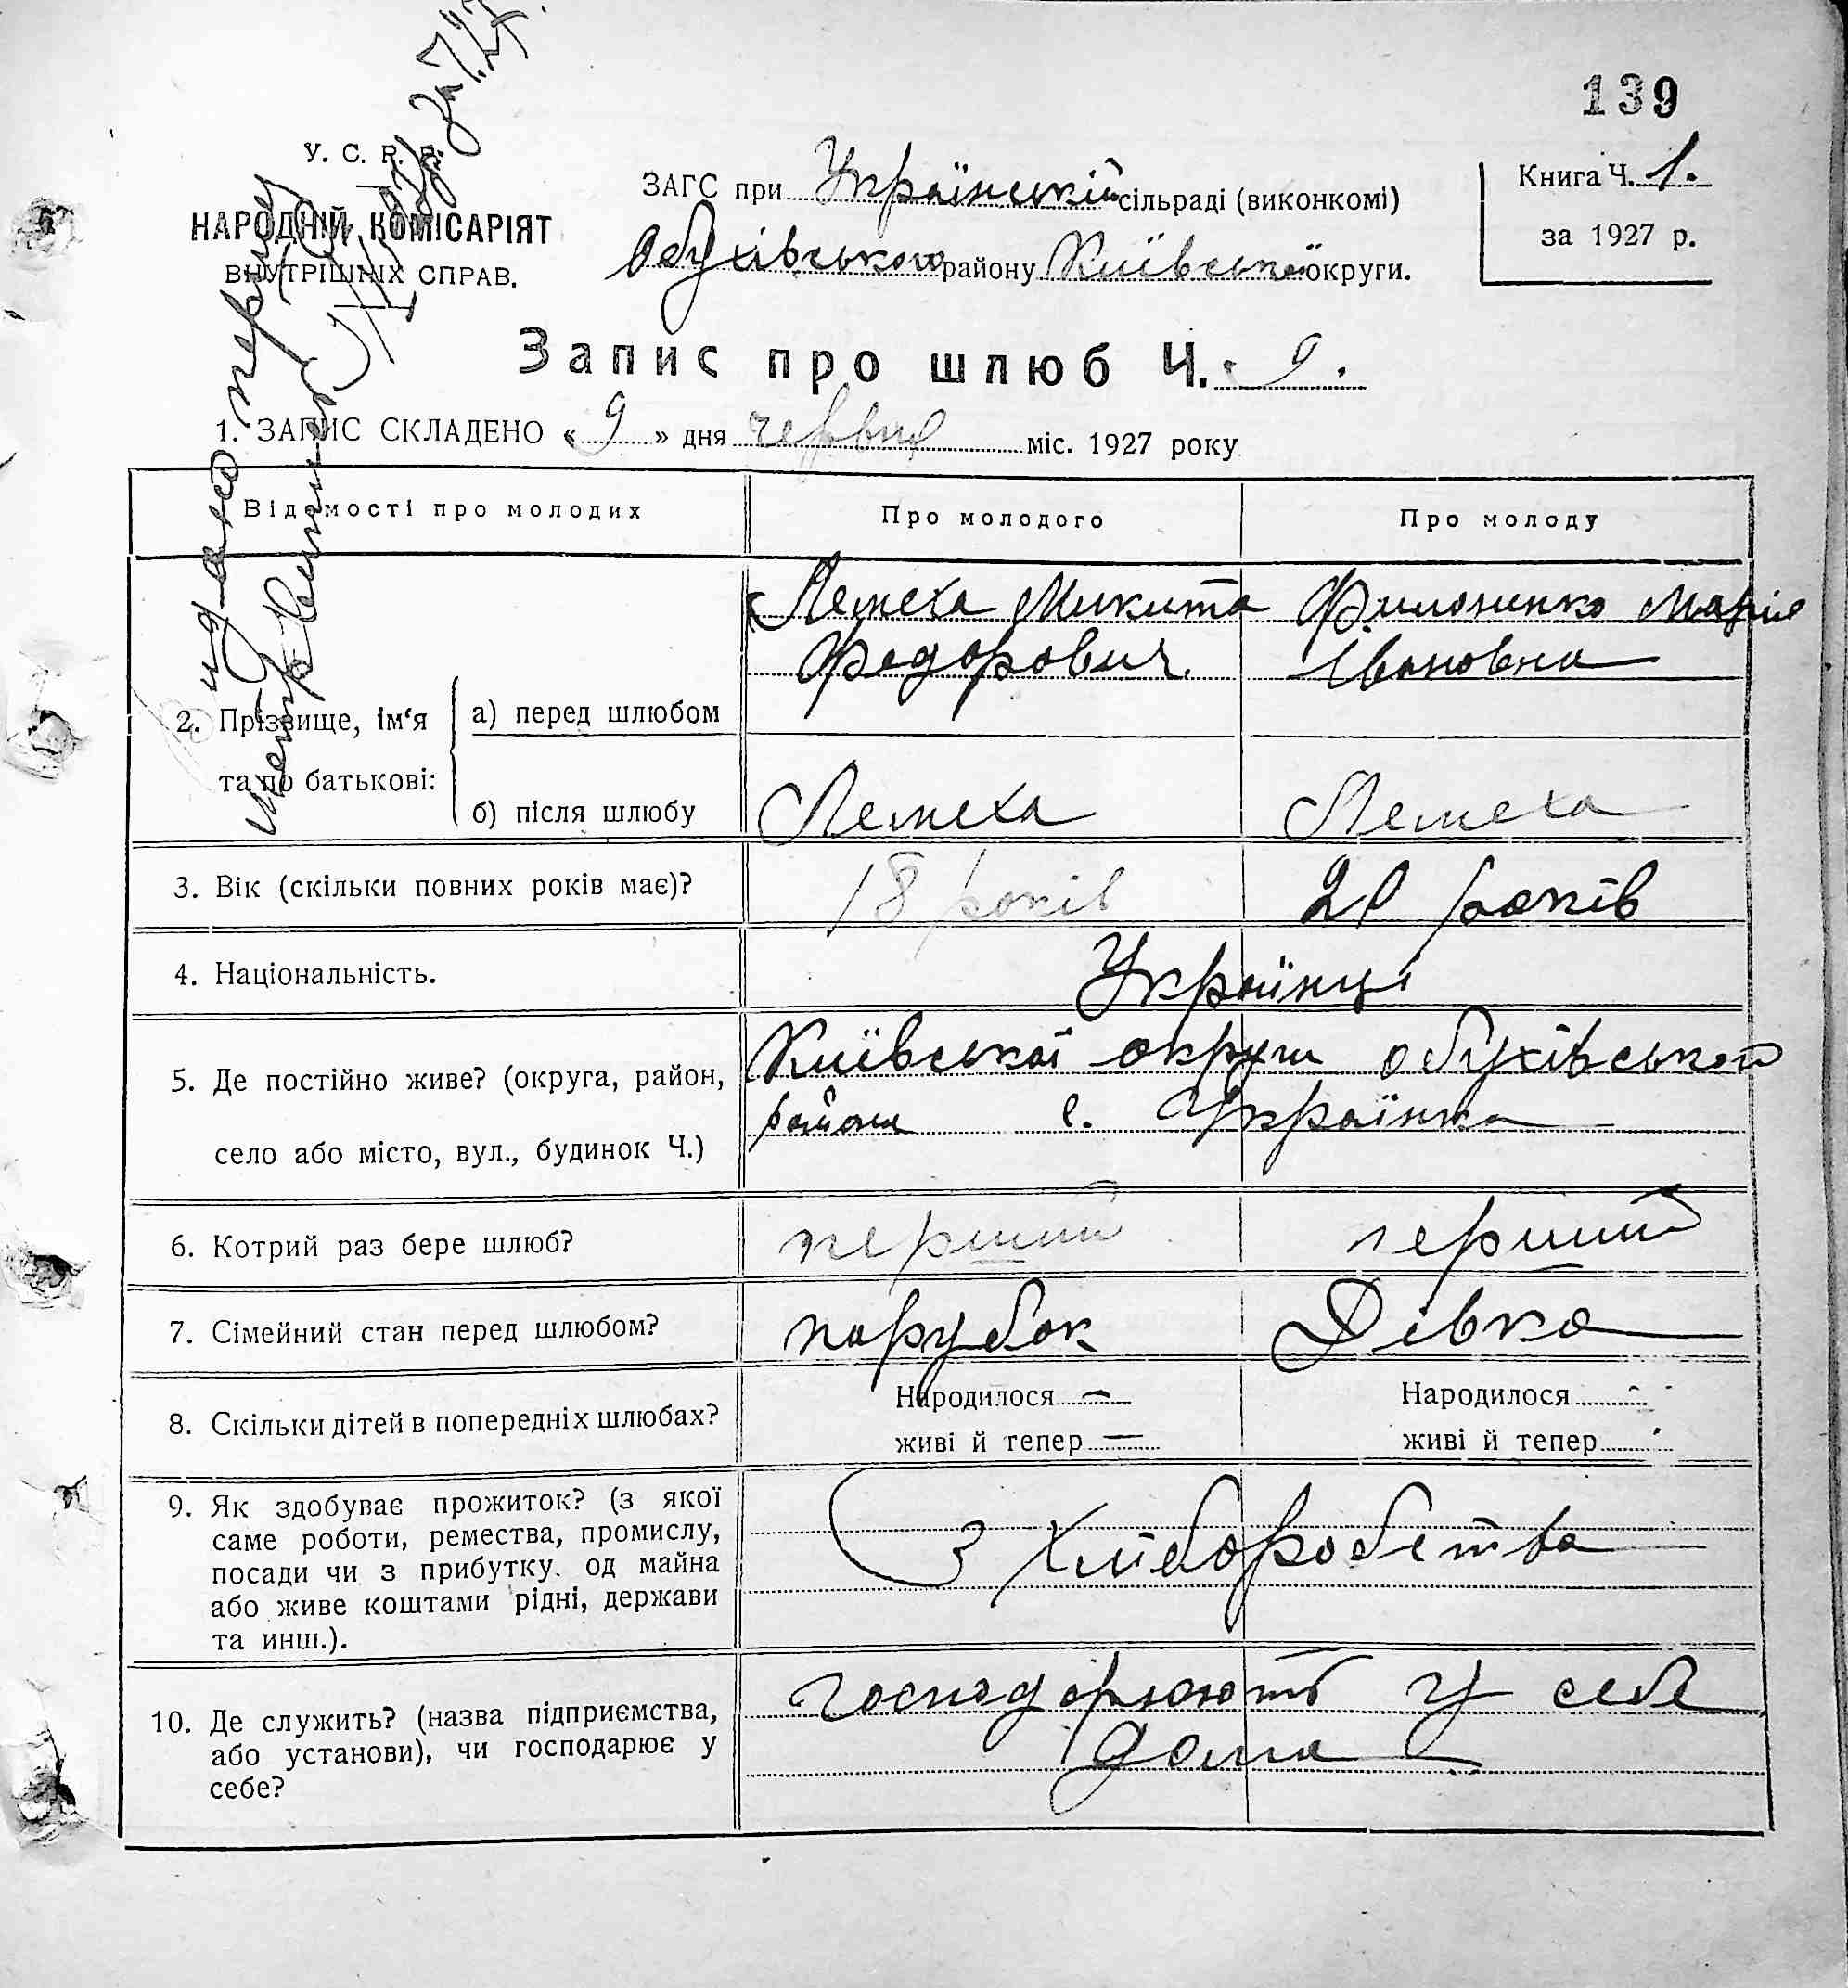 139
У. С. Р. Р.
НАРОДНІЙ КОМІСАРІЯТ
ВНУТРІШНІХ СПРАВ.
ЗАГС при Українській сільраді (виконкомі)
Обухівського району Київської округи.
Книга Ч. 1.
за 1927 р.
видано першу
Запис про шлюб Ч. 9.
1. ЗАПИС СКЛАДЕНО « 9 » дня червня міс. 1927 року
Відомості про молодих Про молодого Про молоду
Лемеха Микита Филоненко Марія
Федорович. Івановна
2. Прізвище, ім‘я а) перед шлюбом
та по батькові:
б) після шлюбу Лемеха Лемеха
3. Вік (скільки повних років має)? 18 років 20 років
4. Національність. Українці
5. Де постійно живе? (округа, район, Київської округи Обухівського
района с. Українка
село або місто, вул., будинок Ч.)
6. Котрий раз бере шлюб? перший перший
7. Сімейний стан перед шлюбом? парубок Дівка
8. Скільки дітей в попередніх шлюбах? Народилося — Народилося
живі й тепер — живі й тепер
9. Як здобуває прожиток? (з якої
саме роботи, ремества, промислу, З хліборобства
посади чи з прибутку од майна
або живе коштами рідні, держави
та инш.).
господарюють у себе
10. Де служить? (назва підприємства,
або установи), чи господарює у дома
себе?